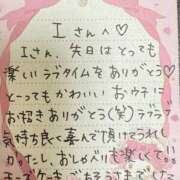 Iさんへ♡
Iさん、先日はとっても
楽しいラブタイムをありがとう♡
とってもかわいいおウチに
お招きありがとう(笑)ラブラブ
気持ち良く喜んで頂けてうれし
かったし、おしゃべりも楽しくて。
チーズケーキごちそうさまでした